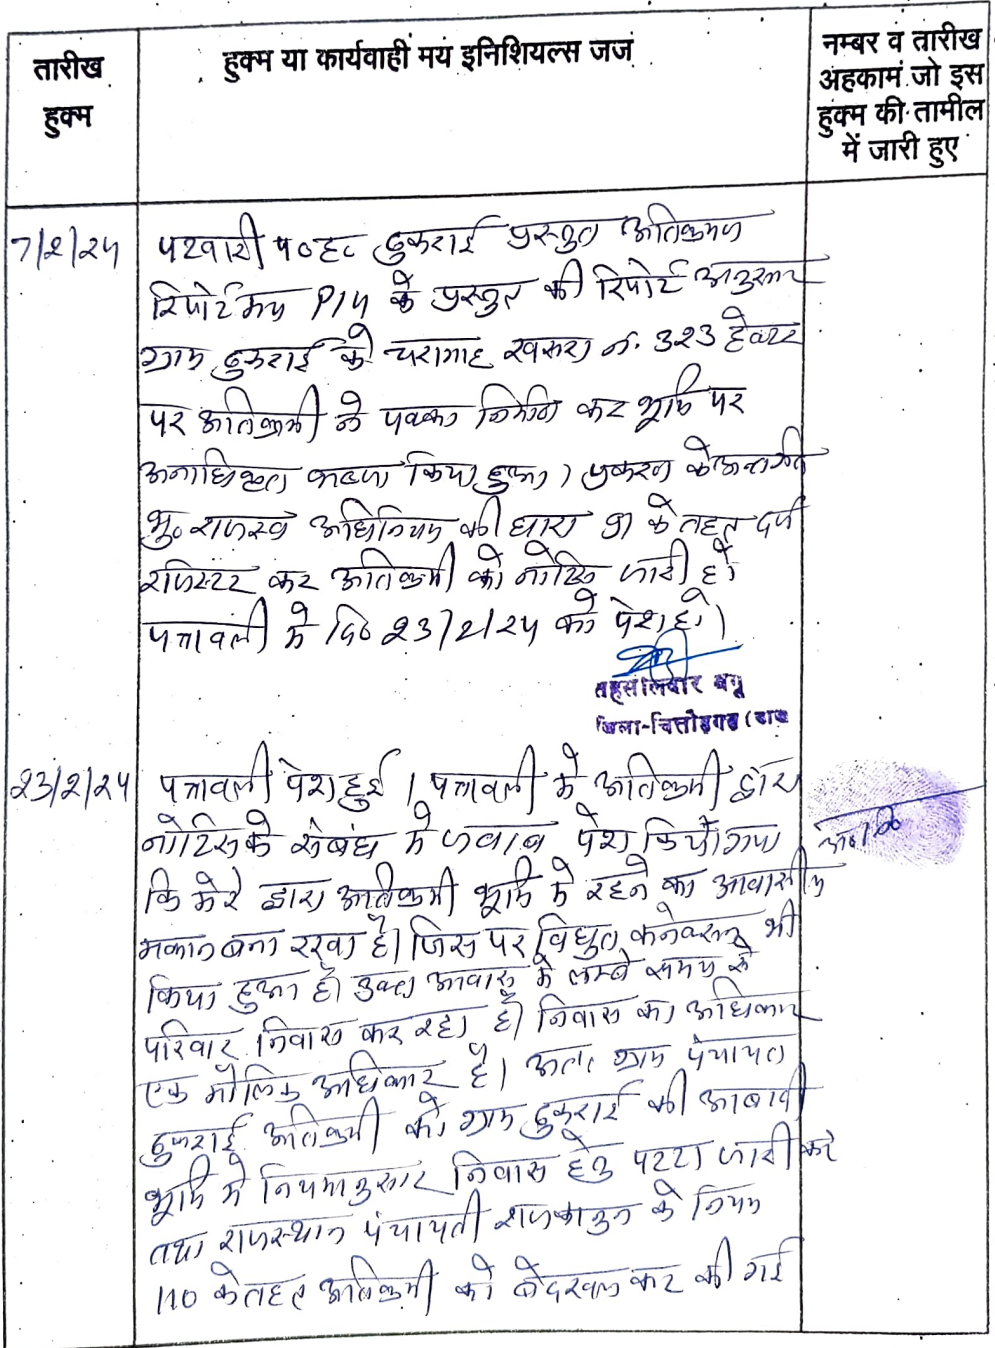 तारीख
हुक्म
हुक्म या कार्यवाही मय इनिशियल्स जज
नम्बर व तारीख
अहकाम जो इस
हुक्म की तामील
में जारी हुए
7/2/24
पटवारी प०ह० ठुकराई प्रस्तुत अतिक्रमण
रिपोर्ट मय P14 के प्रस्तुत की रिपोर्ट अनुसार
ग्राम ठुकराई के चरागाह खसरा नं. 323 हेक्टर
पर अतिक्रमी ने पक्का निर्माण कर भूमि पर
अनाधिकृत कब्जा किया हुआ। प्रकरण के अन्तर्गत
भू० राजस्व अधिनियम की धारा 91 के तहत दर्ज
रजिस्टर कर अतिक्रमी को नोटिस जारी हो
पत्रावली में दि० 23/2/24 को पेश हो।
तहसीलदार बेगू
जिला-चित्तोड़गढ़ (राज
23/2/24
पत्रावली पेश हुई। पत्रावली में अतिक्रमी द्वारा
नोटिस के संबंध में जवाब पेश किया गया
कि मेरे द्वारा अतिक्रमी भूमि में रहने का आवासीय
मकान बना रखा है। जिस पर विधुत कनेक्शन भी
किया हुआ है। उक्त आवास में लम्बे समय से
परिवार निवास कर रहा है। निवास का अधिकार
एक मौलिक अधिकार है। अतः ग्राम पंचायत
ठुकराई अतिक्रमी को ग्राम ठुकराई की आबादी
भूमि में नियमानुसार निवास हेतु पट्टा जारी करे
तथा राजस्थान पंचायती राज कानुन के नियम
110 के तहत अतिक्रमी को बेदखल कर की गई